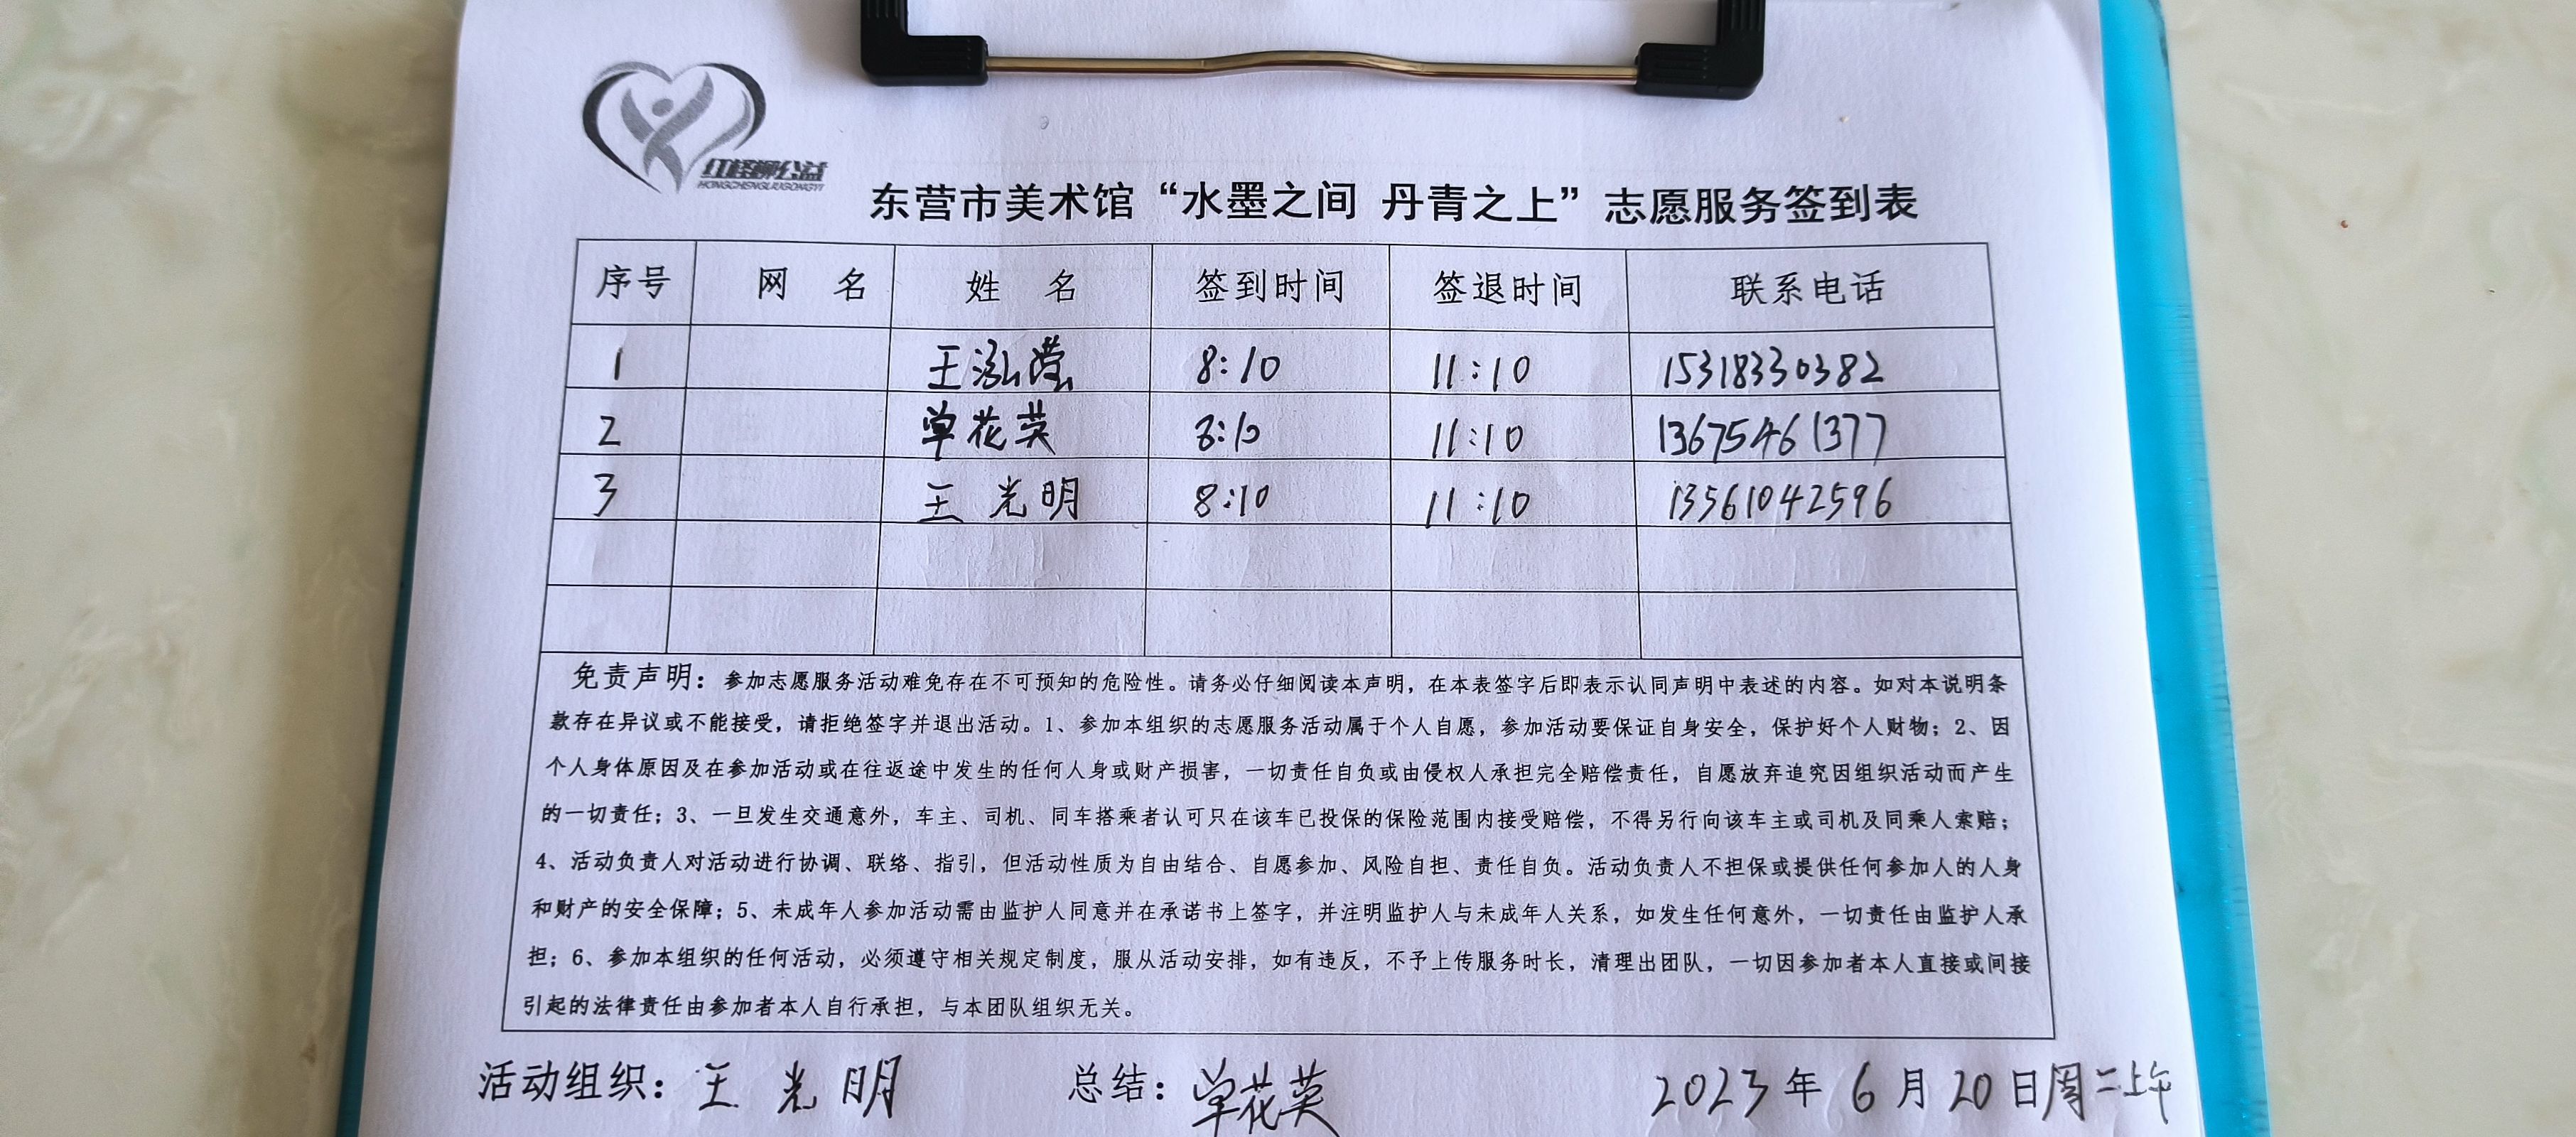 红柽柳公益
HONGCHENGLIUGONGYI
东营市美术馆“水墨之间 丹青之上”志愿服务签到表
序号 网 名 姓 名 签到时间 签退时间 联系电话
1 王泓滢 8:10 11:10 15318330382
2 单花英 8:10 11:10 13675461377
3 王光明 8:10 11:10 13561042596
免责声明：参加志愿服务活动难免存在不可预知的危险性。请务必仔细阅读本声明，在本表签字后即表示认同声明中表述的内容。如对本说明条
款存在异议或不能接受，请拒绝签字并退出活动。1、参加本组织的志愿服务活动属于个人自愿，参加活动要保证自身安全，保护好个人财物；2、因
个人身体原因及在参加活动或在往返途中发生的任何人身或财产损害，一切责任自负或由侵权人承担完全赔偿责任，自愿放弃追究因组织活动而产生
的一切责任；3、一旦发生交通意外，车主、司机、同车搭乘者认可只在该车已投保的保险范围内接受赔偿，不得另行向该车主或司机及同乘人索赔；
4、活动负责人对活动进行协调、联络、指引，但活动性质为自由结合、自愿参加、风险自担、责任自负。活动负责人不担保或提供任何参加人的人身
和财产的安全保障；5、未成年人参加活动需由监护人同意并在承诺书上签字，并注明监护人与未成年人关系，如发生任何意外，一切责任由监护人承
担；6、参加本组织的任何活动，必须遵守相关规定制度，服从活动安排，如有违反，不予上传服务时长，清理出团队，一切因参加者本人直接或间接
引起的法律责任由参加者本人自行承担，与本团队组织无关。
活动组织：王光明 总结：单花英 2023年6月20日周二上午